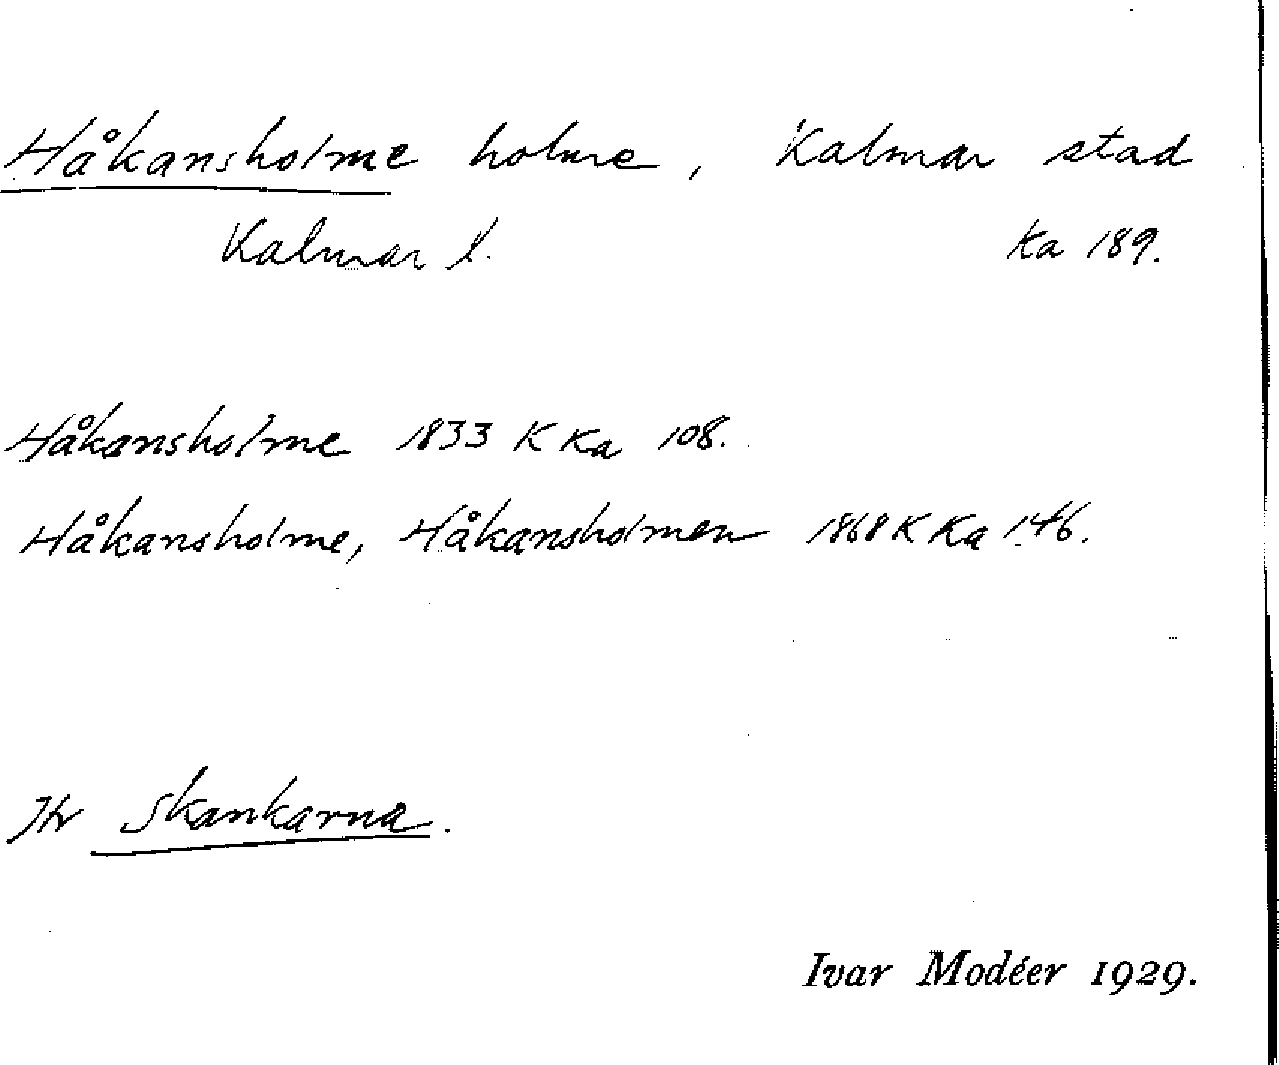 Håkansholme holme, Kalmar stad
Kalmar l. Ka 189.
Håkansholme 1833 K Ka 108.
Håkansholme, Håkansholmen 1868 K Ka 146.
Jfr Skankarna.
Ivar Modéer 1929.